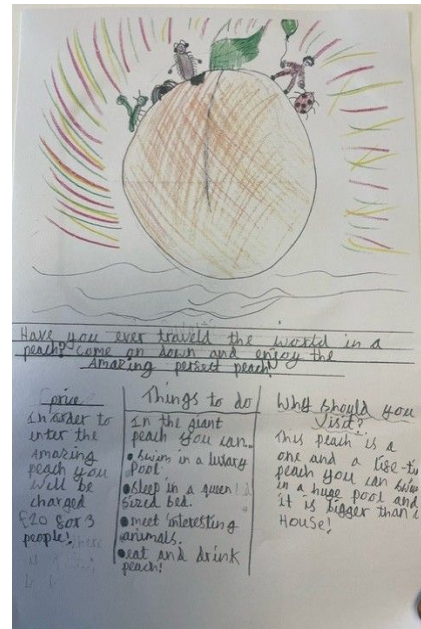 Have you ever traveld the world in a
peach? Come on down and enjoy the
Amazing perfect peach!
price
In order to
enter the
Amazing
peach you
will be
charged
£20 for 3
people!
Things to do
In the giant
peach you can..
• Swim in a luxary
Pool.
• sleep in a queen
sized bed.
• meet interesting
animals.
• eat and drink
peach!
Why should you
Visit?
This peach is a
one and a life-ti
peach you can swim
in a huge pool and
it is bigger than a
House!